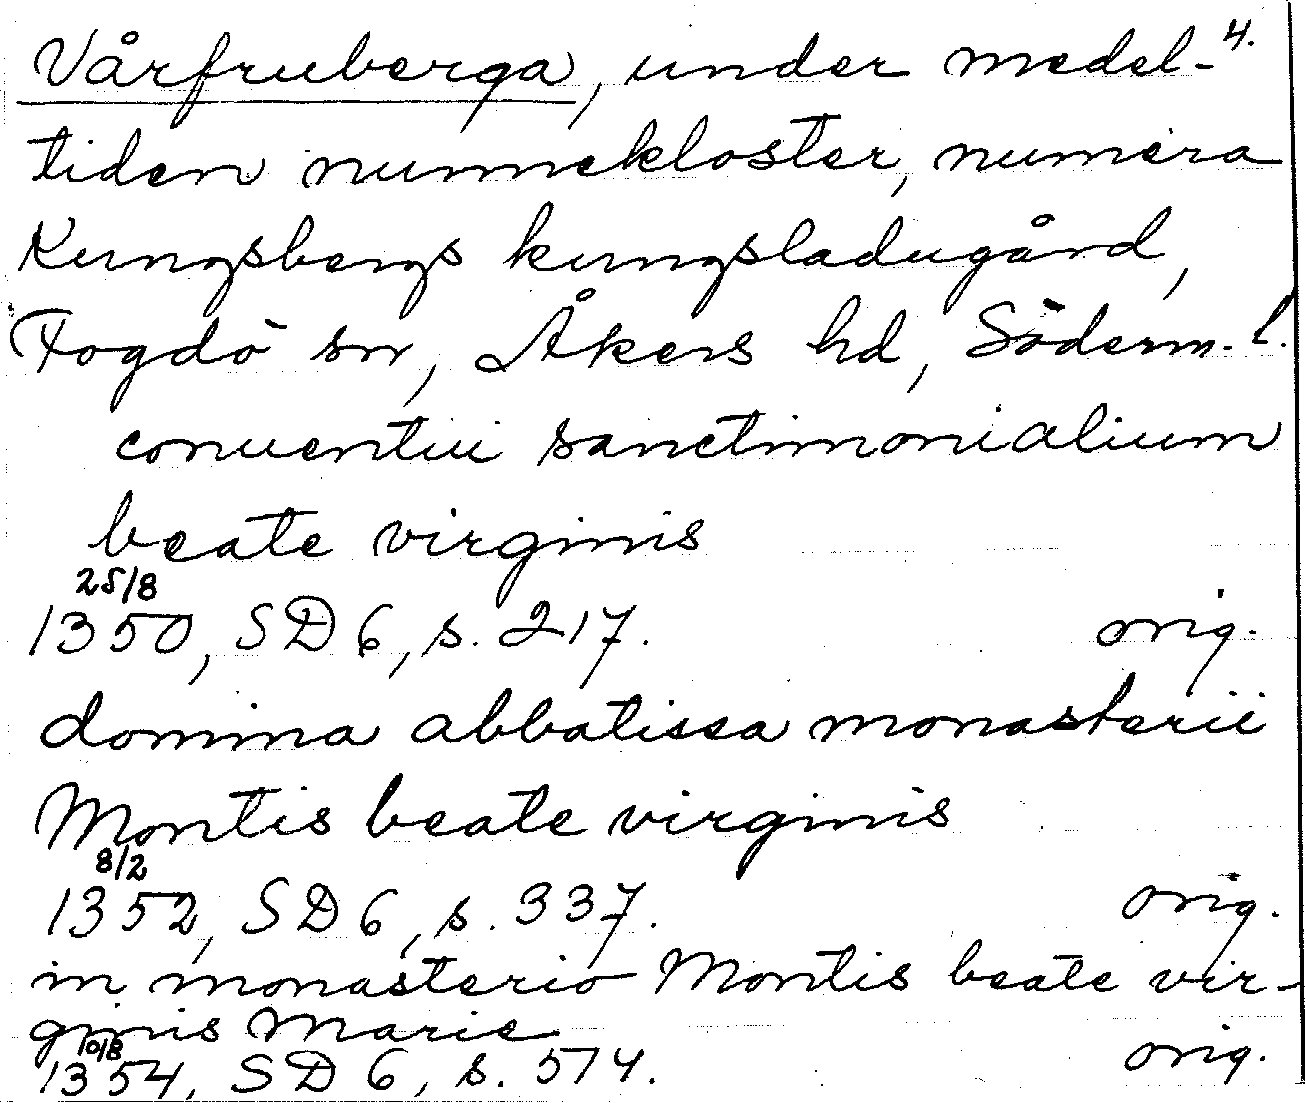 4.
Vårfruberga, under medel-
tiden nunnekloster, numera
Kungsbergs kungsladugård,
Fogdö sn, Åkers hd, Söderm. l.
conuentui sanctimonialium
beate virginis
25/8
1350, SD 6, s. 217. orig.
domina abbatissa monasterii
Montis beate virginis
8/2
1352, SD 6, s. 337. orig.
in monasterio Montis beate vir-
ginis Marie
10/8
1354, SD 6, s. 574. orig.